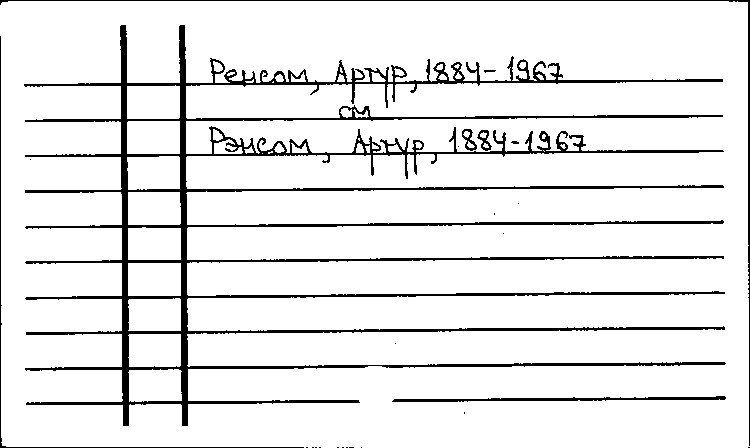 Ренсом, Артур, 1884-1967
см
Рэнсом, Артур, 1884-1967